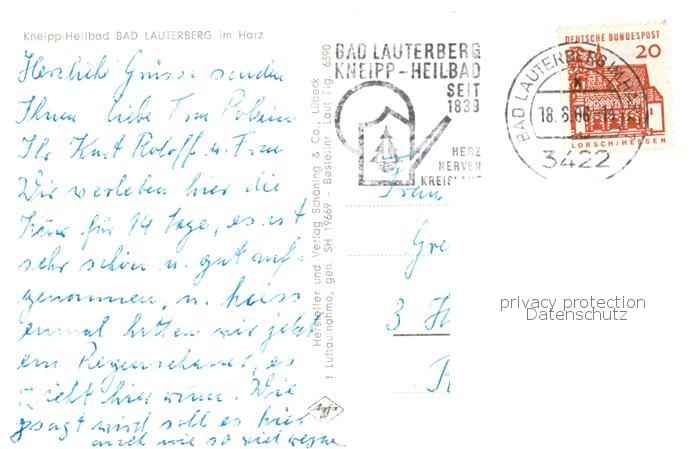 Kneipp-Heilbad BAD LAUTERBERG im Harz
Herzliche Grüsse senden
Ihnen liebe Frau
Ihr Kurt Roloff u. Frau
Wir verleben hier die
für 14 Tage, es ist
sehr schön u. gut auf-
genommen, u. heiss
einmal hatten wir jetzt
ein Regenschauer, es
zieht hier Wie
gesagt wird soll es hier
auch nie so viel regnen
Hersteller und Verlag Schöning & Co., Lübeck
† Luftaufnahme, gen. SH 19669 - Bestellnr. Laut Fig. 6390
BAD LAUTERBERG
KNEIPP-HEILBAD
SEIT
1839
HERZ
NERVEN
KREISLAUF
BAD LAUTERBERG
18. 8.66
3422
DEUTSCHE BUNDESPOST
20
LORSCH/HESSEN
Frau
Gre
3 H
privacy protection
Datenschutz